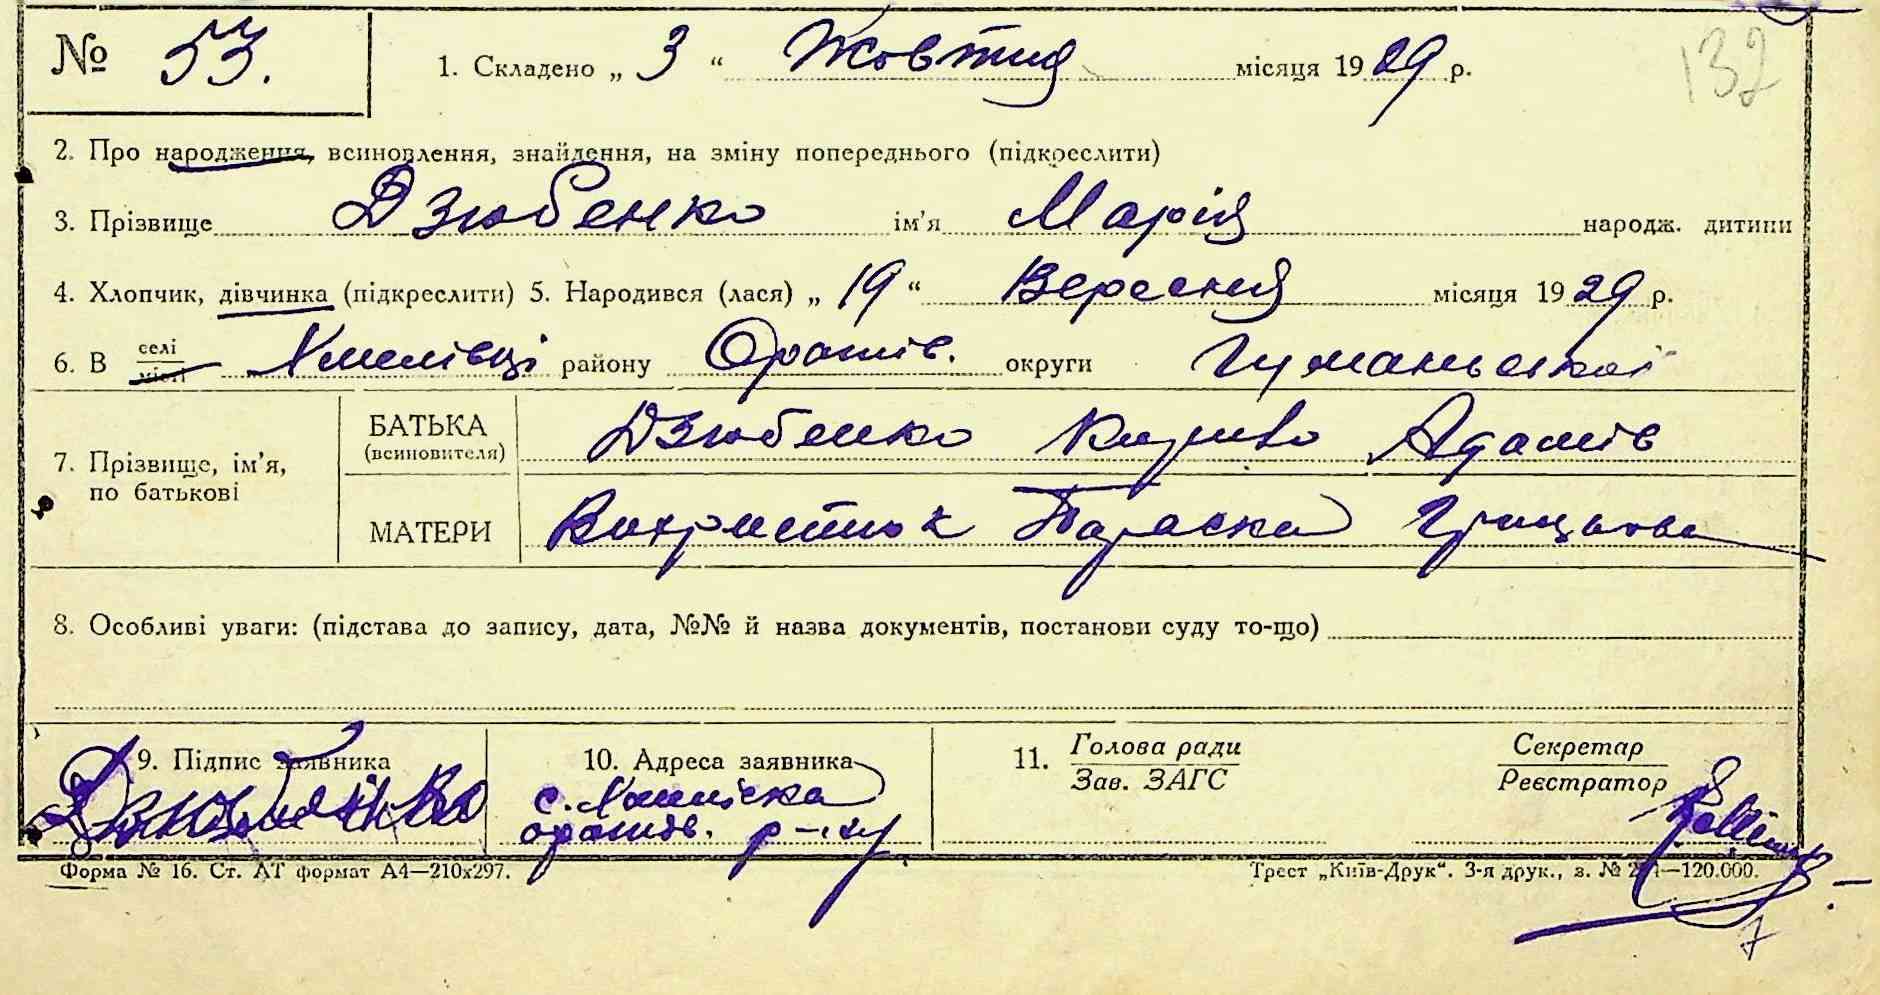 132
№ 53. 1. Складено „ 3 “ Жовтня місяця 1929 р.
2. Про народження, всиновлення, знайдення, на зміну попереднього (підкреслити)
3. Прізвище Дзюбенко ім’я Марія народж. дитини
4. Хлопчик, дівчинка (підкреслити) 5. Народився (лася) „ 19 “ Вересня місяця 1929 р.
6. В селі місті району Оратів. округи Гуманьської
7. Прізвище, ім’я, по батькові
БАТЬКА (всиновителя) Дзюбенко Адамів
МАТЕРИ Параска Грицькова
8. Особливі уваги: (підстава до запису, дата, №№ й назва документів, постанови суду то-що)
9. Підпис заявника
Дзюбенко
10. Адреса заявника
с.
оратів. р-ну
11. Голова ради
Зав. ЗАГС
Секретар
Реєстратор
Форма № 16. Ст. АТ формат А4—210х297.
Трест „Київ-Друк“. 3-я друк., з. № —120.000.
7